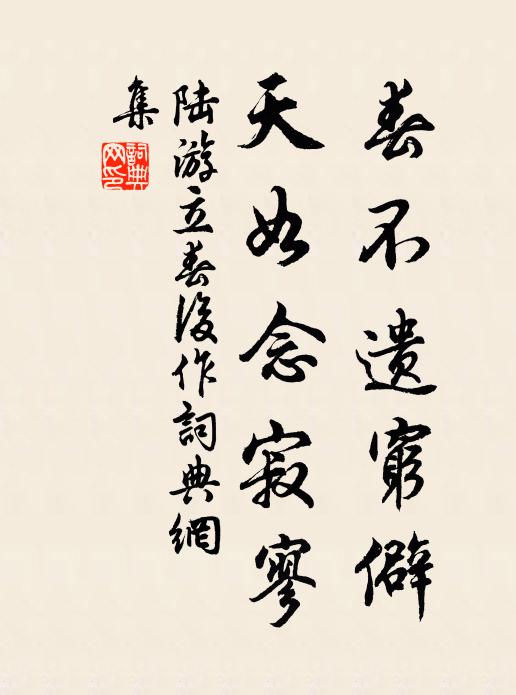 春不遺窮僻
天如念寂寥
陆游立春後作詞典網
集
詞典網印